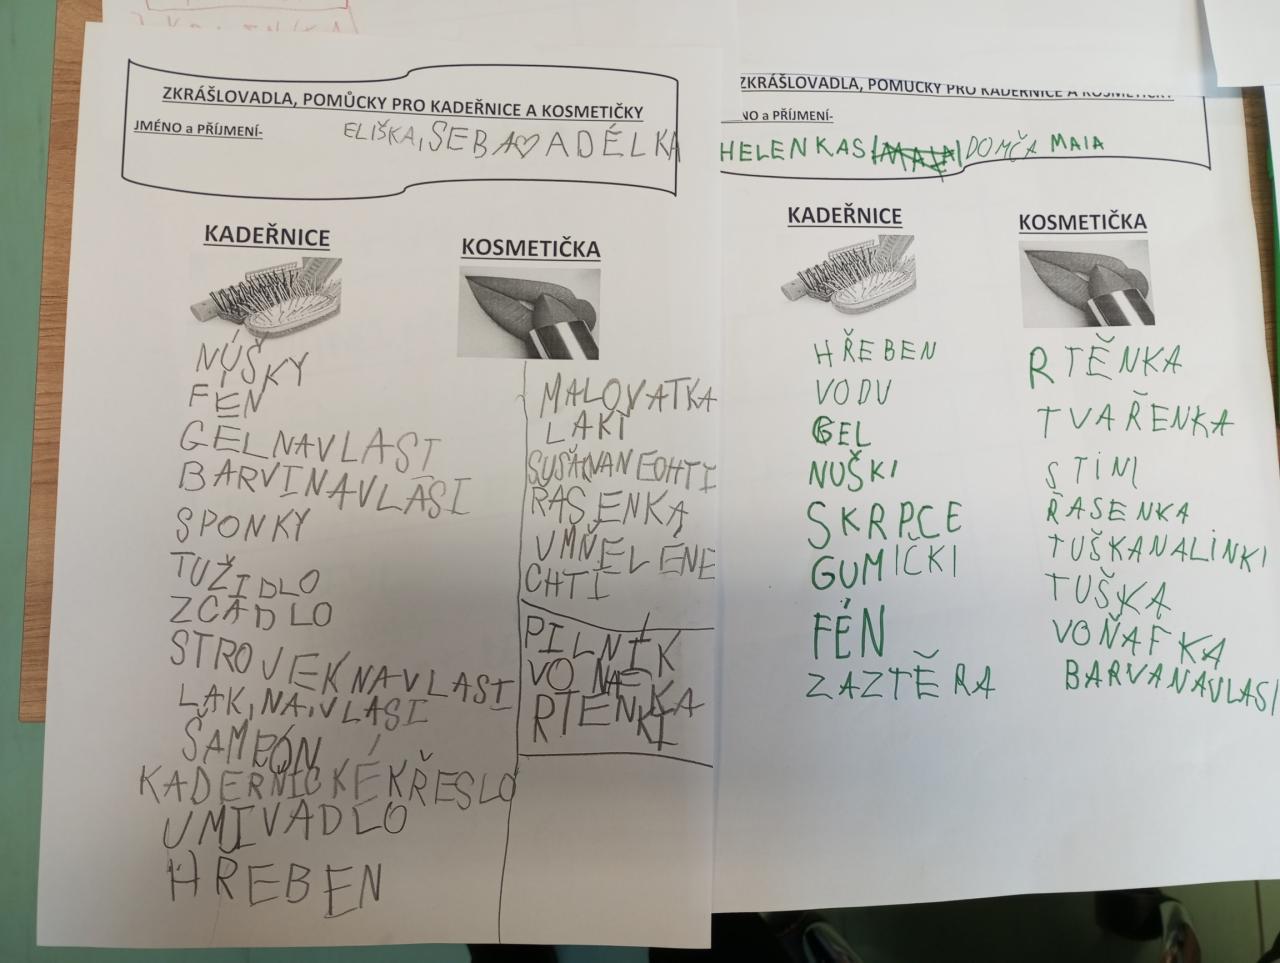 ZKRÁŠLOVADLA, POMŮCKY PRO KADEŘNICE A KOSMETIČKY
JMÉNO a PŘÍJMENÍ-
ELIŠKA, SEBA♡ADÉLKA
KADEŘNICE
NŮŠKY
FÉN
GÉLNAVLAST
BARVINAVLÁSI
SPONKY
TUŽIDLO
ZCADLO
STROJEKNAVLASI
LAK,NA,VLASI
ŠAMPÓN
KADERŇICKÉKŘESLO
UMIVADLO
HŘEBEN
KOSMETIČKA
MALOVATKA
LAKI
RASENKA
UMŇELÉNE
CHTI
PILNÍK
RTĚNKI
ZKRÁŠLOVADLA, POMŮCKY PRO KADEŘNICE A KOSMETIČKY
NO a PŘÍJMENÍ-
HELENKAS DOMČA MAIA
KADEŘNICE
HŘEBEN
VODU
GEL
NUŠKI
SKRPCE
GUMIČKI
FÉN
ZAZTĚRA
KOSMETIČKA
RTĚNKA
TVAŘENKA
STINI
ŘASENKA
TUŠKANALINKI
TUŠKA
VOŇAFKA
BARVANAVLASI